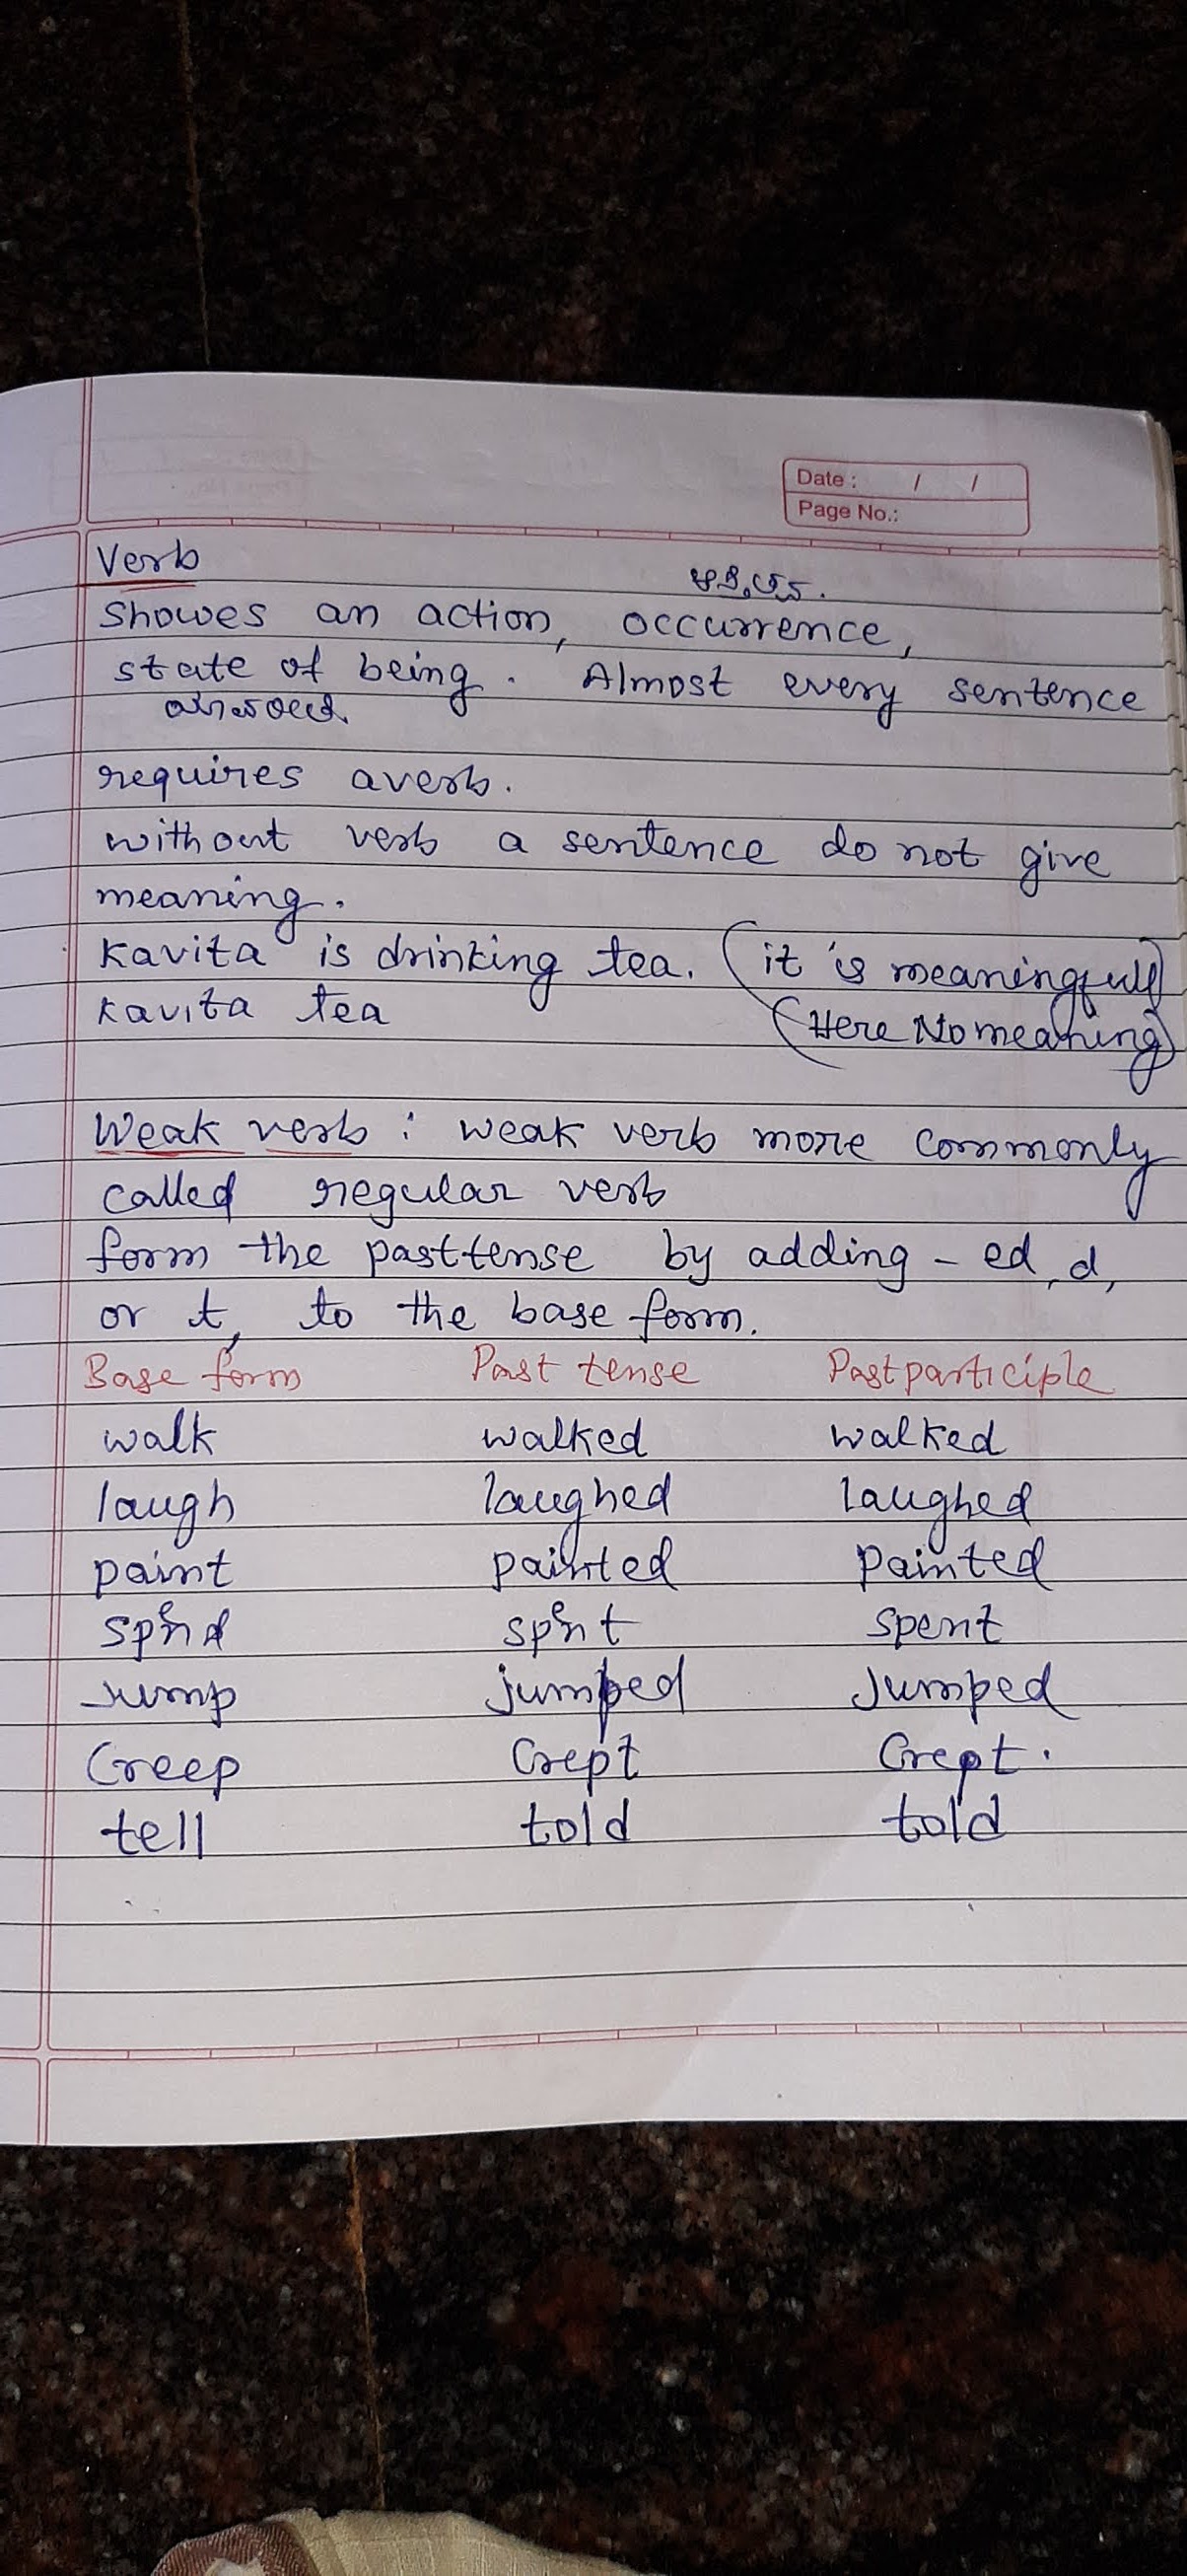 Date : / /
Page No.:
Verb
Showes an action, occurrence,
state of being. Almost every sentence
requires a verb.
without verb a sentence do not give
meaning.
Kavita is drinking tea. (it is meaningfull)
Kavita tea (Here No meaning)
Weak verb : weak verb more commonly
called regular verb
form the past tense by adding - ed, d,
or t, to the base form.
Base form Past tense Past participle
walk walked walked
laugh laughed laughed
paint painted painted
spend spent spent
Jump jumped Jumped
Creep Crept Crept.
tell told told